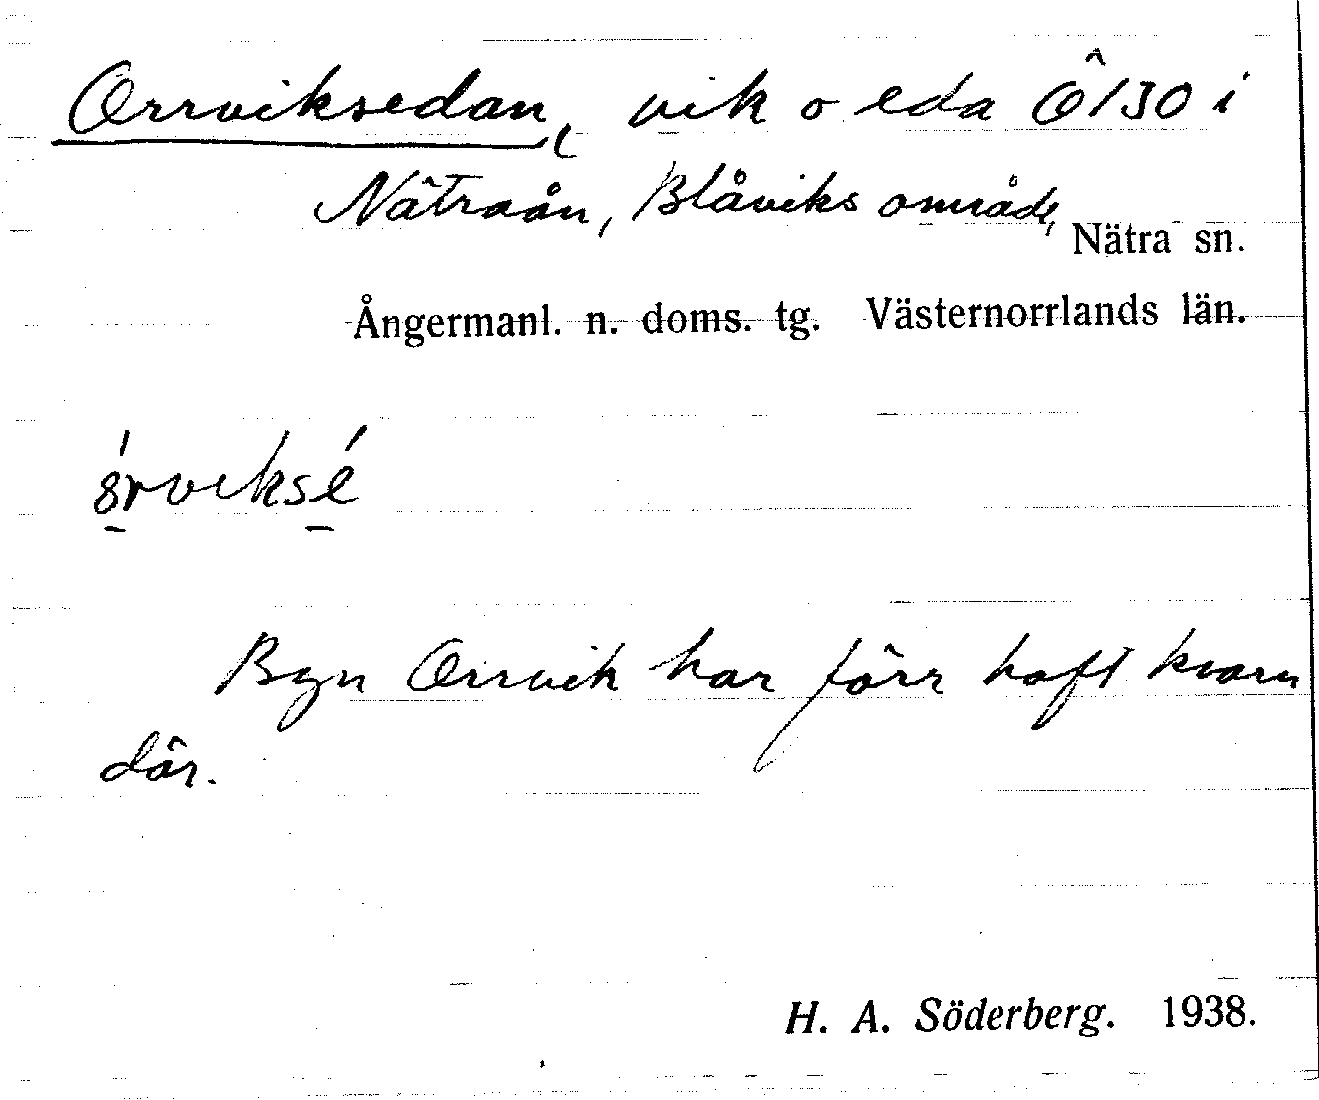 Orrviksedan, vik o eda Ö130 i
Nätraån, Blåviks område,
Nätra sn.
Ångermanl. n. doms. tg. Västernorrlands län.
Byn Orrvik har förr haft kvarn
där.
H. A. Söderberg. 1938.